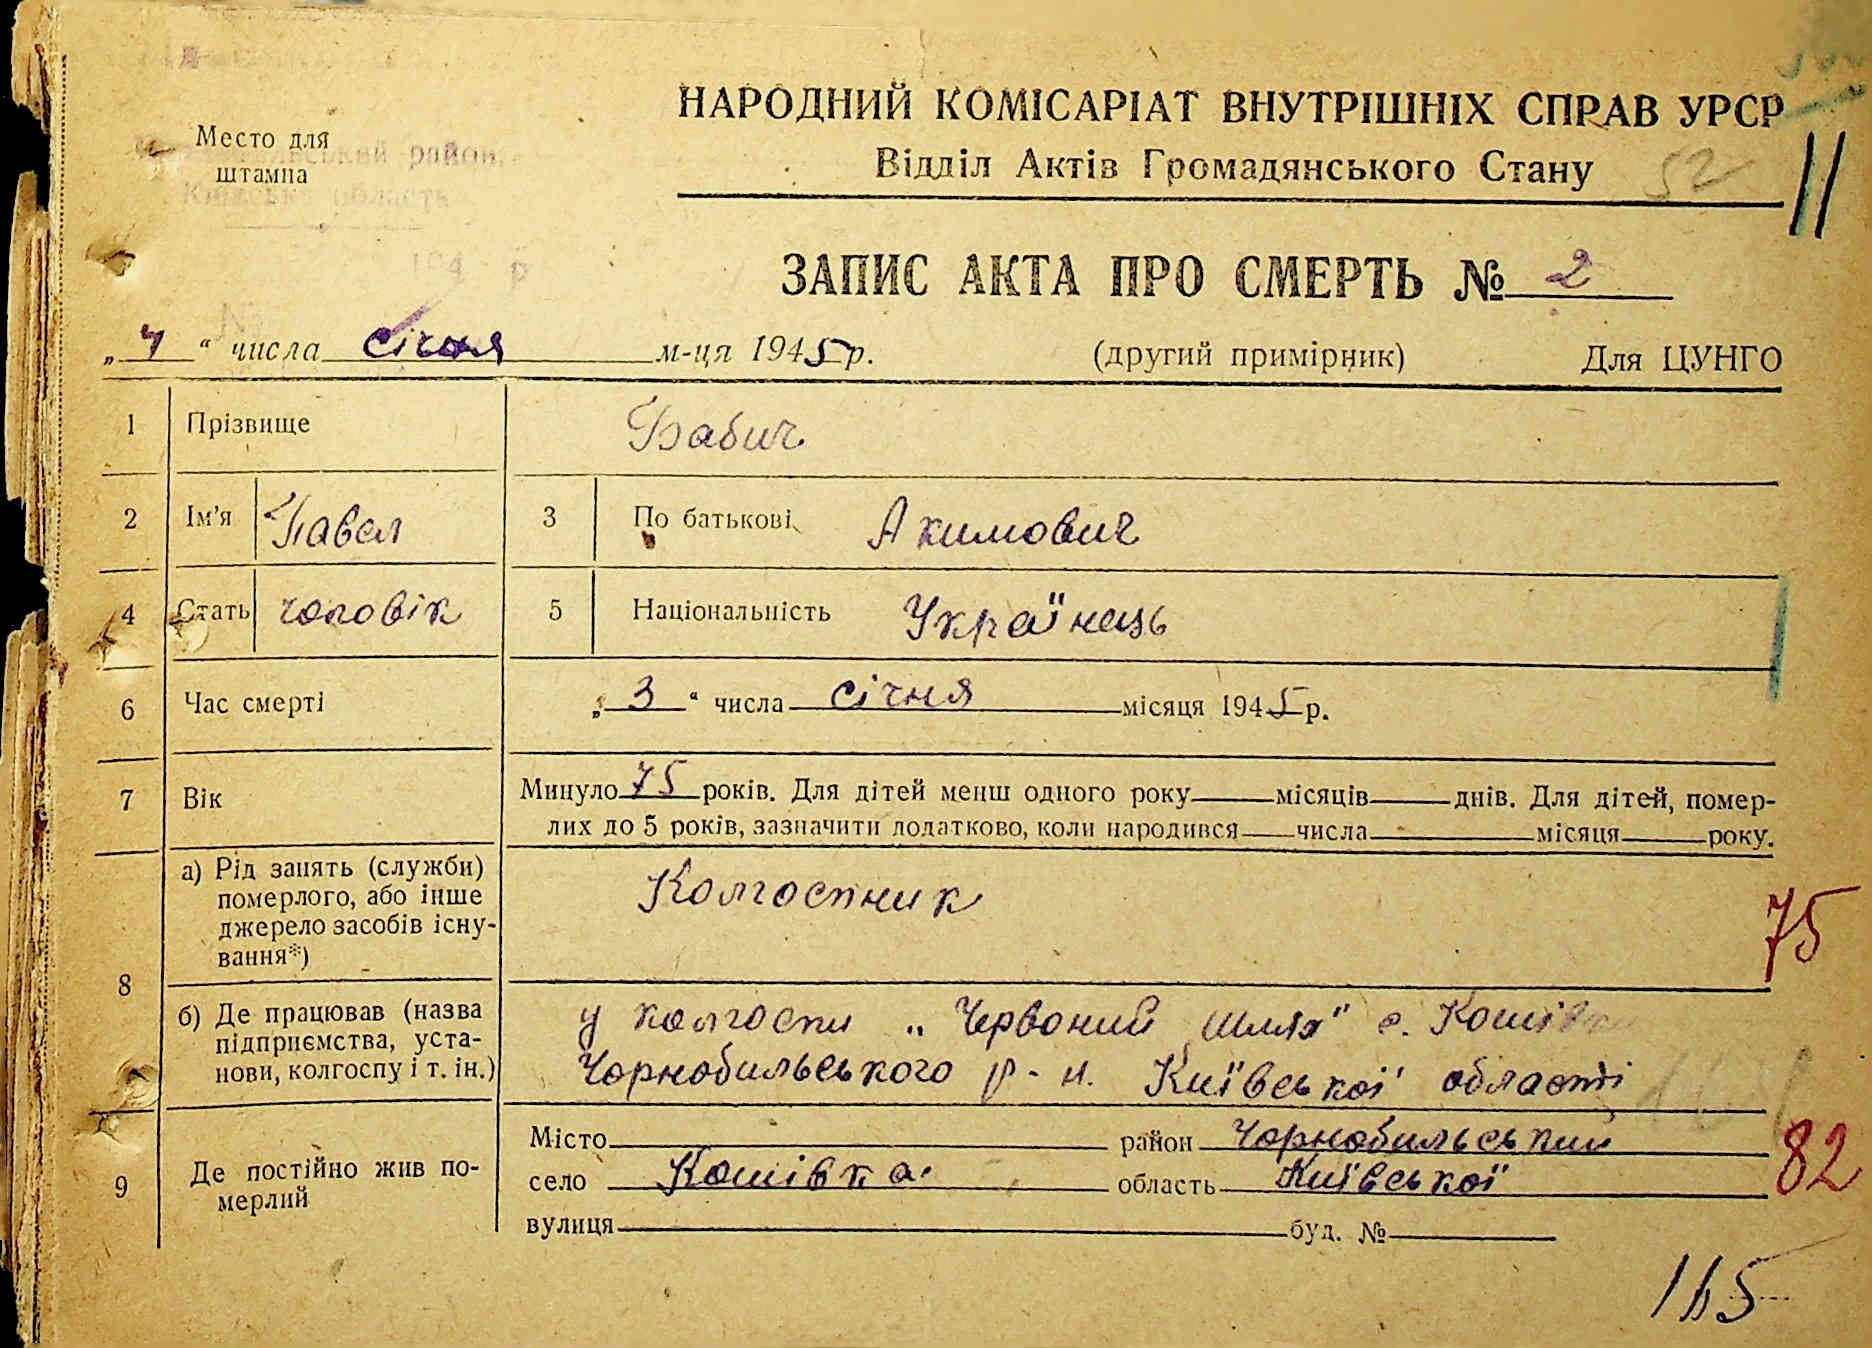 НАРОДНИЙ КОМІСАРІАТ ВНУТРІШНІХ СПРАВ УРСР
Відділ Актів Громадянського Стану
52
11
Место для
штампа
район
Київська область
194 р
№
ЗАПИС АКТА ПРО СМЕРТЬ № 2
„ 4 “ числа січня м-ця 1945 р. (другий примірник) Для ЦУНГО
1 Прізвище Бабич
2 Ім'я Павел 3 По батькові Акимович
4 Стать чоловік 5 Національність Українець
6 Час смерті „ 3 “ числа січня місяця 1945 р.
7 Вік Минуло 75 років. Для дітей менш одного року місяців днів. Для дітей, помер-
лих до 5 років, зазначити додатково, коли народився числа місяця року.
8 а) Рід занять (служби)
померлого, або інше
джерело засобів існу-
вання*)
Колгоспник
75
б) Де працював (назва
підприємства, уста-
нови, колгоспу і т. ін.)
у колгоспи „Червоний шлях" с. Кошівка
Чорнобильського р-н. Київської області
9 Де постійно жив по-
мерлий
Місто район Чорнобильський
село Кошівка область Київської
вулиця буд. №
82
165